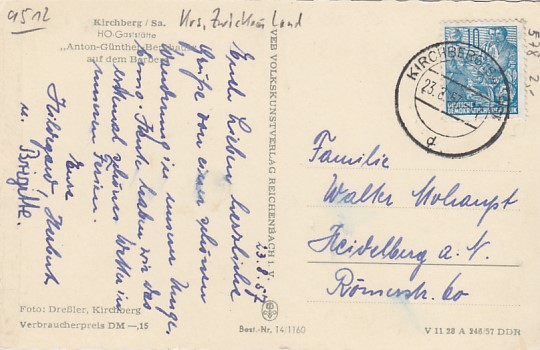 9512
Krs. Zwickau Land
Kirchberg / Sa.
HO-Gaststätte
„Anton-Günther-Berghaus"
auf dem Borberg
23.8.57
Euch Lieben herzliche
Grüße von einer schönen
Wanderung in unserer Umge-
bung. Heute haben wir das
erstemal schönes Wetter in
unseren Ferien.
Eure
Hildegard, Herbert
u. Brigitte.
Foto: Dreßler, Kirchberg
Verbraucherpreis DM —,15
VEB VOLKSKUNSTVERLAG REICHENBACH i. V.
Best.-Nr. 14/1160
KIRCHBERG
23.8.
d
DEUTSCHE
DEMOKRATISCHE REPUBLIK
10
578
Familie
Walter Mohaupt
Heidelberg a. N.
Römerstr. 60
V 11 28 A 246/57 DDR